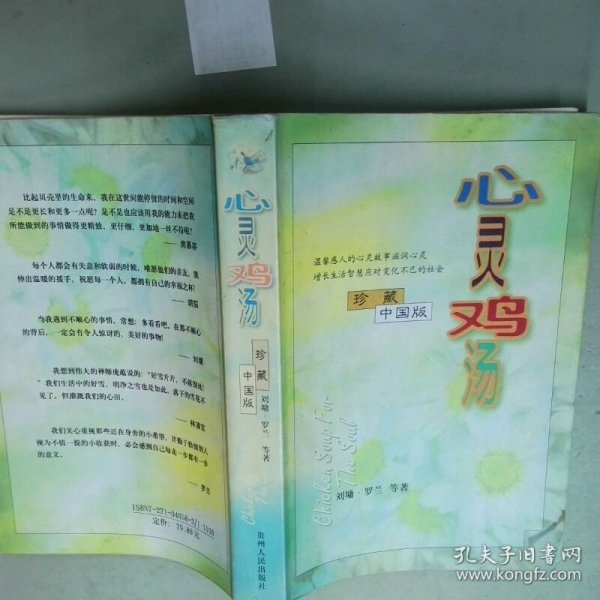 比起贝壳里的生命来，我在这世间能停留的时间和空间
是不是更长和更多一点呢？是不是也应该用我的能力来把我
所能做到的事情做得更精致、更仔细、更加地一丝不苟呢？
——席慕蓉
每个人都会有失意和软弱的时候，唯愿他们的亲友，能
伸出温暖的援手，祝愿每一个人，都拥有自己的幸福之杯！
当我遇到不顺心的事情，常想：多看看吧，在那不顺心
的背后，一定会有令人惊讶的、美好的事物！
——刘墉
我想到伟大的禅师庞蕴说的：“好雪片片，不落别处！
”我们生活中的好雪、明净之雪也是如此，落下的雪花不
见了，但灌溉我们的心田。
——林清玄
我们关心重视那些近在身旁的小希望，并勤于拾掇别人
视为不值一提的小收获时，必会感到自己每走一步都有一步
的意义。
——罗兰
ISBN7-221-04058-3/I·1130
定价：29.80元
心灵鸡汤
珍藏
中国版
刘墉 罗兰 等著
贵州人民出版社
心灵鸡汤
温馨感人的心灵故事滋润心灵
增长生活智慧应对变化不已的社会
珍藏
中国版
Chicken Soup For
The Soul
刘墉·罗兰 等著
孔夫子旧书网
www.kongfz.com